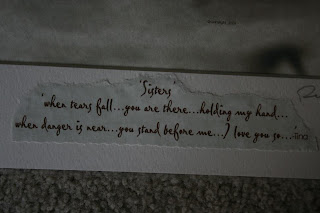 'Sisters'
'when tears fall...you are there...holding my hand...
when danger is near...you stand before me...I love you so...-tina